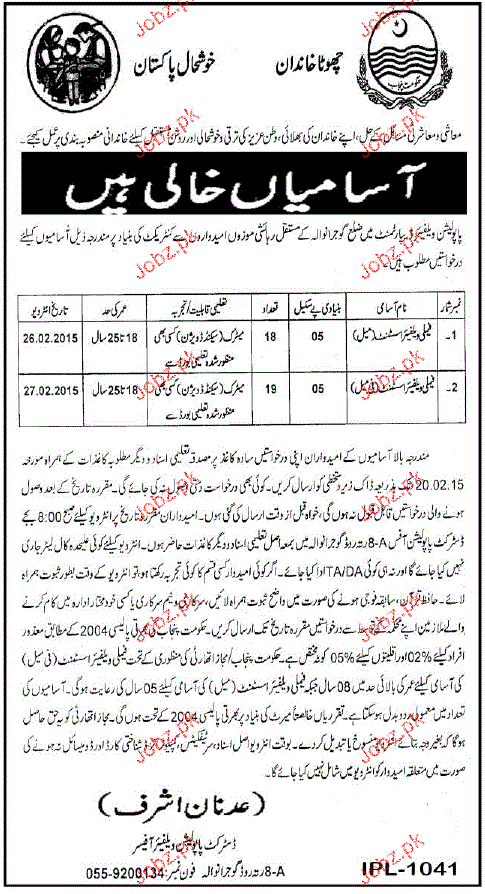 چھوٹا خاندان
خوشحال پاکستان
معاشی و معاشرتی مسائل کے حل، اپنے خاندان کی بھلائی، وطن عزیز کی ترقی و خوشحالی اور روشن مستقبل کیلئے خاندانی منصوبہ بندی پر عمل کیجئے۔
آسامیاں خالی ہیں
پاپولیشن ویلفیئر ڈیپارٹمنٹ میں ضلع گوجرانوالہ کے مستقل رہائشی موزوں امیدواروں سے کنٹریکٹ کی بنیاد پر مندرجہ ذیل آسامیوں کیلئے
درخواستیں مطلوب ہیں۔
نمبر شمار نام آسامی بنیادی پے سکیل تعداد تعلیمی قابلیت/تجربہ عمر کی حد تاریخ انٹرویو
1۔ فیملی ویلفیئر اسسٹنٹ (میل) 05 18 میٹرک (سیکنڈ ڈویژن) کسی بھی 18 تا 25 سال 26.02.2015
منظور شدہ تعلیمی بورڈ سے
2۔ فیملی ویلفیئر اسسٹنٹ (فی میل) 05 19 میٹرک (سیکنڈ ڈویژن) کسی بھی 18 تا 25 سال 27.02.2015
منظور شدہ تعلیمی بورڈ سے
مندرجہ بالا آسامیوں کے امیدواران اپنی درخواستیں سادہ کاغذ پر مصدقہ تعلیمی اسناد و دیگر مطلوبہ کاغذات کے ہمراہ مورخہ
20.02.15 تک بذریعہ ڈاک زیر دستخطی کو ارسال کریں۔ کوئی بھی درخواست دستی وصول نہ کی جائے گی۔ مقررہ تاریخ کے بعد وصول
ہونے والی درخواستیں قابل قبول نہ ہوں گی، خواہ قبل از وقت ارسال کی گئی ہوں۔ امیدواران مقررہ تاریخ پر انٹرویو کیلئے صبح 8:00 بجے
ڈسٹرکٹ پاپولیشن آفس 8-A رتہ روڈ گوجرانوالہ میں بمعہ اصل تعلیمی اسناد و دیگر کاغذات حاضر ہوں۔ انٹرویو کیلئے کوئی علیحدہ کال لیٹر جاری
نہیں کیا جائے گا اور نہ ہی کوئی TA/DA ادا کیا جائے گا۔ اگر کوئی امیدوار کسی قسم کا کوئی تجربہ رکھتا ہو تو انٹرویو کے وقت بطور ثبوت ہمراہ
لائے۔ حافظ قرآن، سابقہ فوجی ہونے کی صورت میں واضح ثبوت ہمراہ لائیں، سرکاری و نیم سرکاری یا کسی خود مختار ادارہ میں کام کرنے
والے ملازمین اپنے محکمہ کے توسط سے درخواستیں مقررہ تاریخ تک ارسال کریں۔ حکومت پنجاب کی بھرتی پالیسی 2004 کے مطابق معذور
افراد کیلئے 02% اور اقلیتوں کیلئے 05% کوٹہ مختص ہے۔ حکومت پنجاب/مجاز اتھارٹی کی منظوری کے تحت فیملی ویلفیئر اسسٹنٹ (فی میل)
کی آسامی کیلئے عمر کی بالائی حد میں 08 سال جبکہ فیملی ویلفیئر اسسٹنٹ (میل) کی آسامی کیلئے 05 سال کی رعایت ہو گی۔ آسامیوں کی
تعداد میں معمولی ردوبدل ہو سکتا ہے۔ تقرریاں خالصتاً میرٹ کی بنیاد پر بھرتی پالیسی 2004 کے تحت ہوں گی۔ مجاز اتھارٹی کو یہ حق حاصل
ہو گا کہ بغیر وجہ بتائے منسوخ یا تبدیل کر دے۔ بوقت انٹرویو اصل اسناد، سرٹیفکیٹس، کمپیوٹرائزڈ شناختی کارڈ اور ڈومیسائل نہ ہونے کی
صورت میں متعلقہ امیدوار کو انٹرویو میں شامل نہیں کیا جائے گا۔
(عدنان اشرف)
ڈسٹرکٹ پاپولیشن ویلفیئر آفیسر
8-A رتہ روڈ گوجرانوالہ فون نمبر: 055-9200134
IPL-1041
Jobz.pk